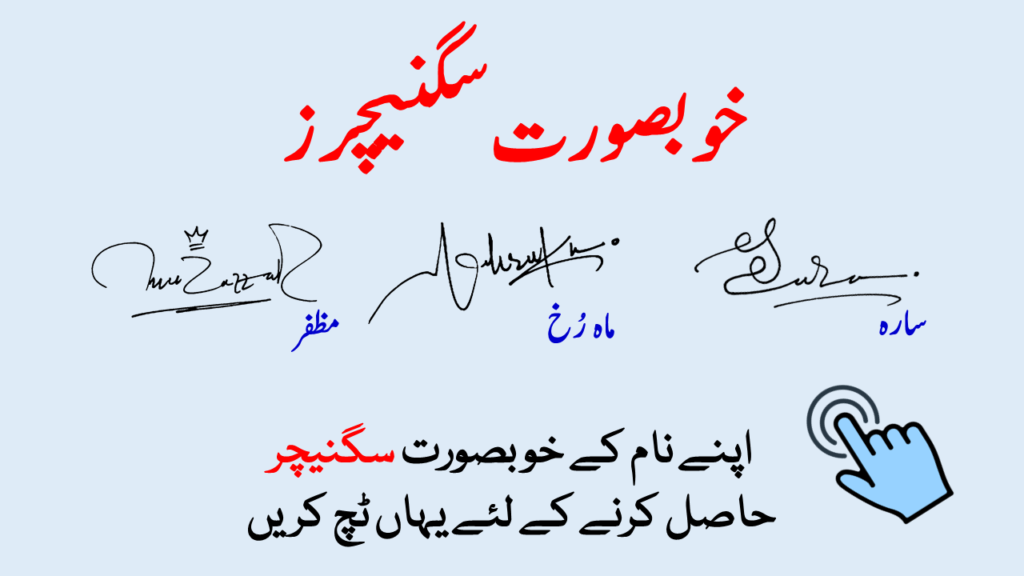 خوبصورت سگنیچرز
Sara
Mahrukh
Muzaffar
سارہ
ماہ رُخ
مظفر
اپنے نام کے خوبصورت سگنیچر
حاصل کرنے کے لئے یہاں ٹچ کریں